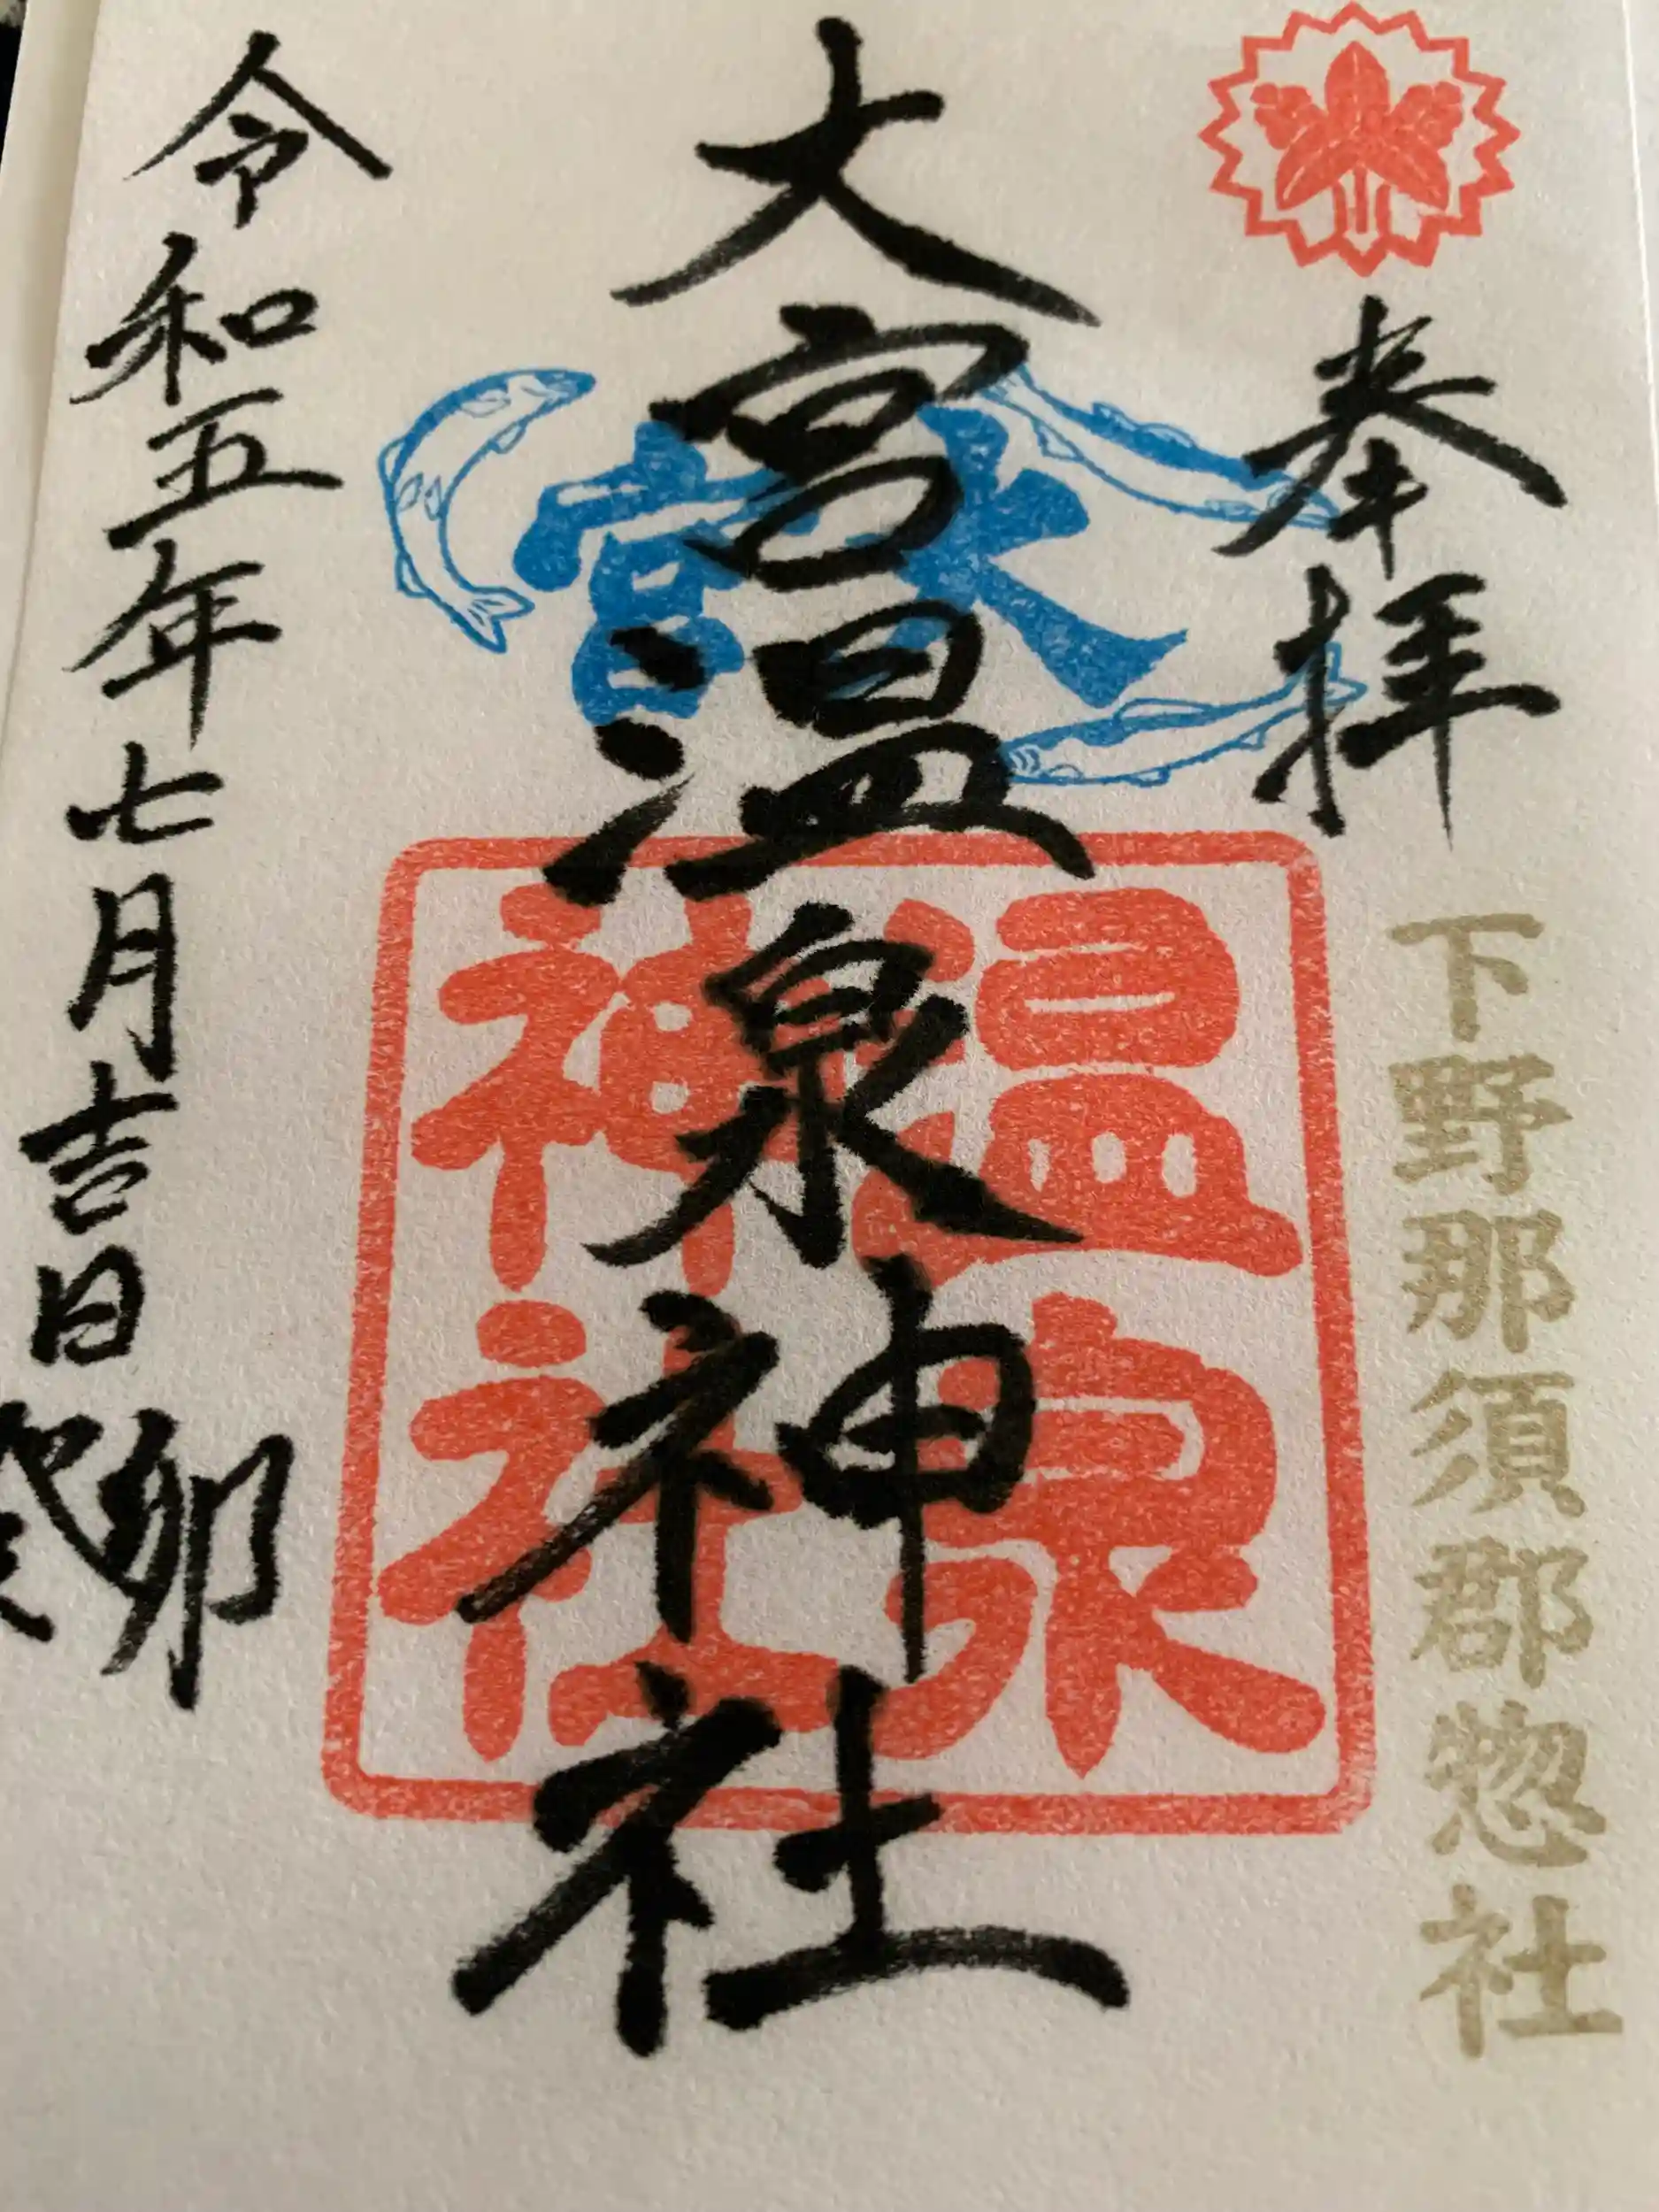 奉拝
下野那須郡惣社
大宮温泉神社
大宮
温泉
神社
令和五年七月吉日